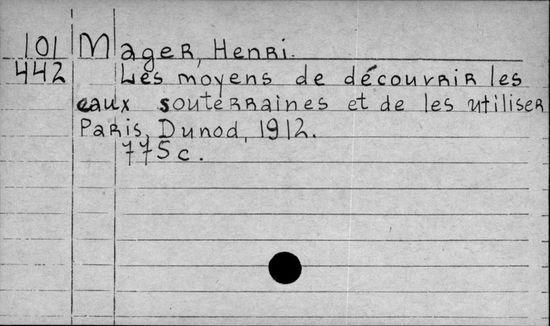 101 Mager, Henri.
442 Les moyens de découvrir les
eaux souterraines et de les utiliser
Paris, Dunod, 1912.
775c.